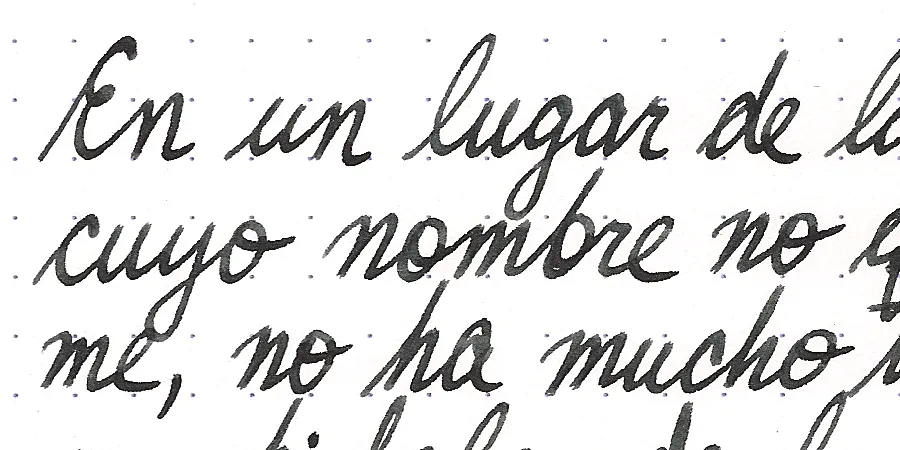 En un lugar de la
cuyo nombre no
me, no ha mucho